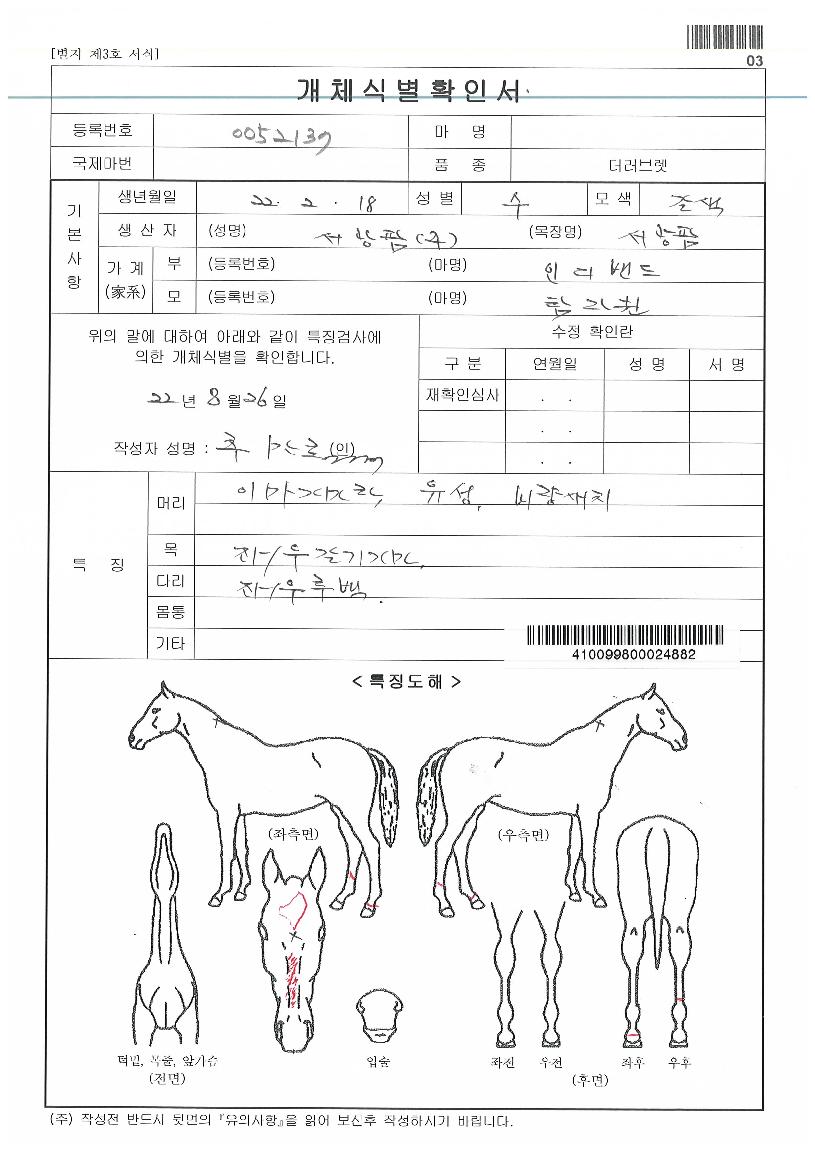 [별지 제3호 서식]
03
개체식별확인서
등록번호 0052137 마 명
국제마번 품 종 더러브렛
기본사항
생년월일 22. 2. 18 성 별 수 모 색
생 산 자 (성명) 서왕팜(주) (목장명) 서왕팜
가 계 (家系) 부 (등록번호) (마명) 인디밴드
모 (등록번호) (마명)
위의 말에 대하여 아래와 같이 특징검사에
의한 개체식별을 확인합니다.
22년 8월 26일
작성자 성명 : (인)
수정 확인란
구 분 연월일 성 명 서 명
재확인심사 . .
. .
. .
특 징
머리 유성, 비량백치
목
다리
몸통
기타
410099800024882
< 특징도해 >
(좌측면) (우측면)
턱밑, 목줄, 앞가슴 입술 좌전 우전 좌후 우후
(전면) (후면)
(주) 작성전 반드시 뒷면의 『유의사항』을 읽어 보신후 작성하시기 바랍니다.